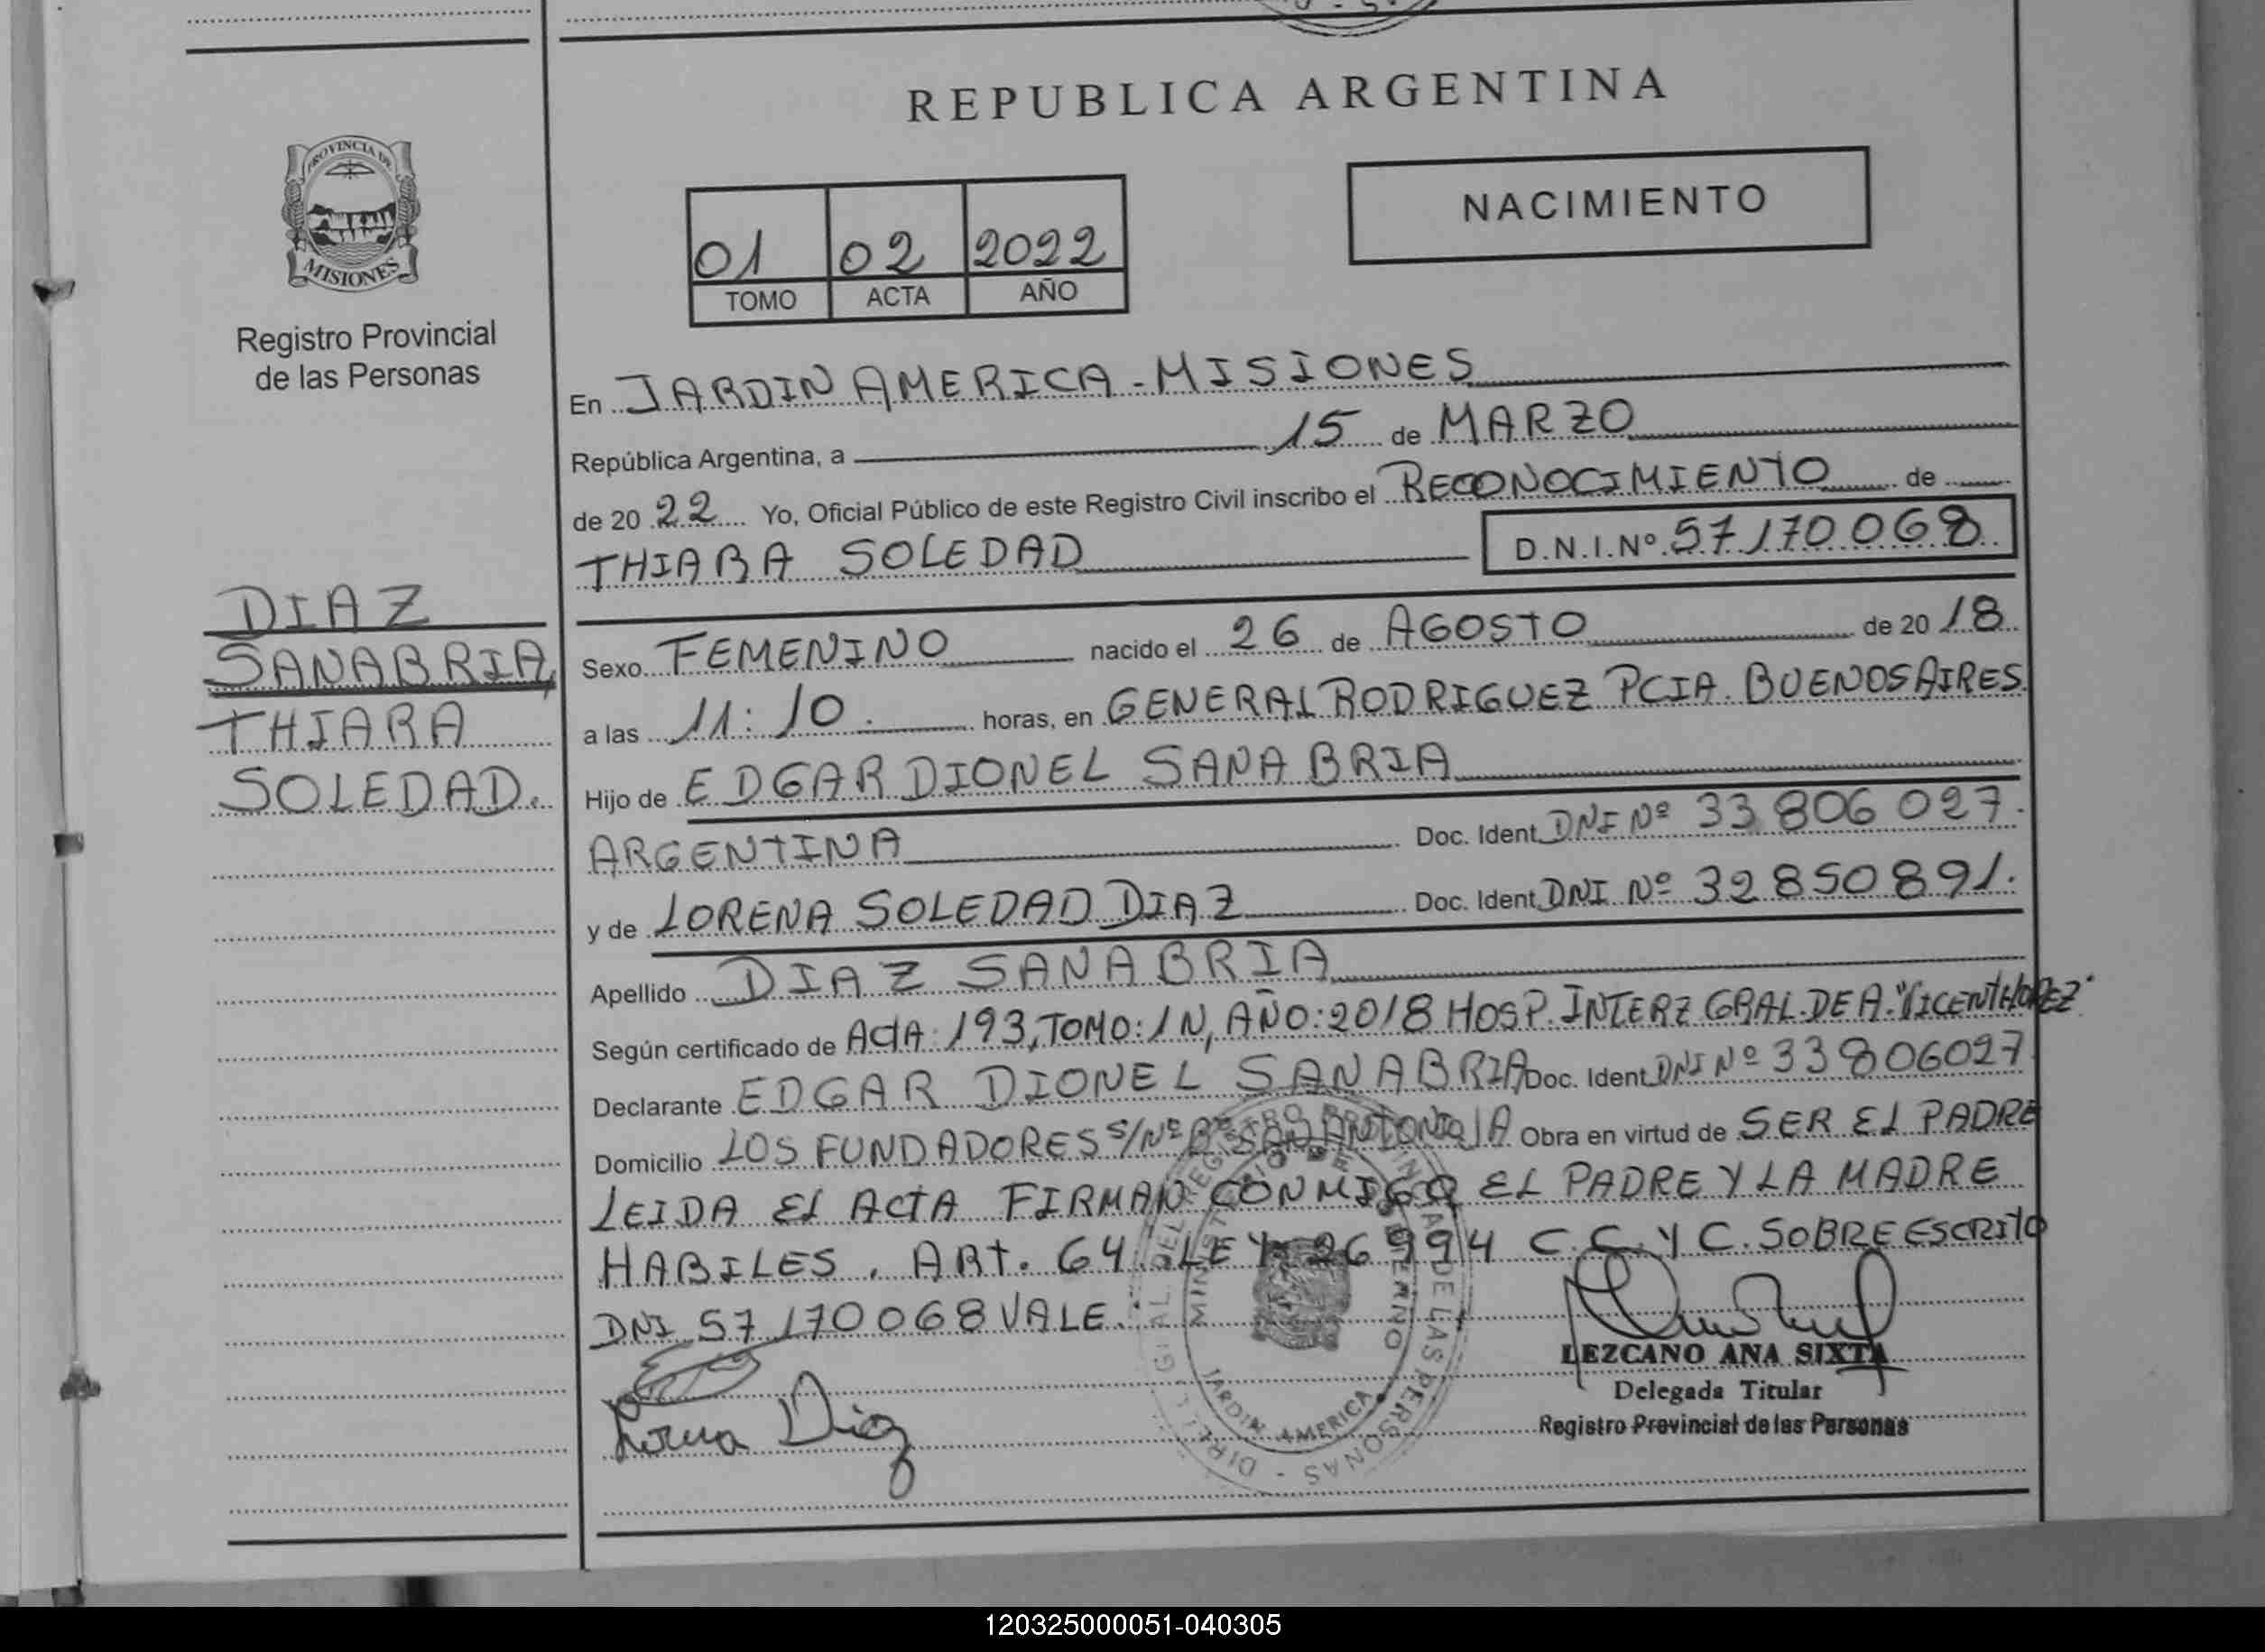 REPUBLICA ARGENTINA
PROVINCIA DE
MISIONES
Registro Provincial
de las Personas
NACIMIENTO
01 02 2022
TOMO ACTA AÑO
DIAZ
SANABRIA,
THIARA
SOLEDAD.
En JARDIN AMERICA - MISIONES
República Argentina, a 15 de MARZO
de 20 22 Yo, Oficial Público de este Registro Civil inscribo el RECONOCIMIENTO de
THIARA SOLEDAD D.N.I.Nº 57170068
Sexo FEMENINO nacido el 26 de AGOSTO de 20 18
a las 11:10. horas, en GENERAL RODRIGUEZ PCIA. BUENOS AIRES.
Hijo de EDGAR DIONEL SANABRIA
ARGENTINA Doc. Ident. DNI Nº 33 806 027.
y de LORENA SOLEDAD DIAZ Doc. Ident. DNI Nº 32850891.
Apellido DIAZ SANABRIA
Según certificado de ACTA: 193, TOMO: 1N, AÑO: 2018 HOSP. INTERZ GRAL. DE A. "VICENTE LOPEZ"
Declarante EDGAR DIONEL SANABRIA Doc. Ident. DNI Nº 33806027
Domicilio LOS FUNDADORES S/Nº Bº SAN ANTONIO JA Obra en virtud de SER EL PADRE
LEIDA EL ACTA FIRMAN CONMIGO EL PADRE Y LA MADRE
HABILES. ART. 64 LEY 26994 C.C. Y C. SOBREESCRITO
DNI 57170068 VALE.
Lorena Diaz
LEZCANO ANA SIXTA
Delegada Titular
Registro Provincial de las Personas
JARDIN AMERICA
120325000051-040305